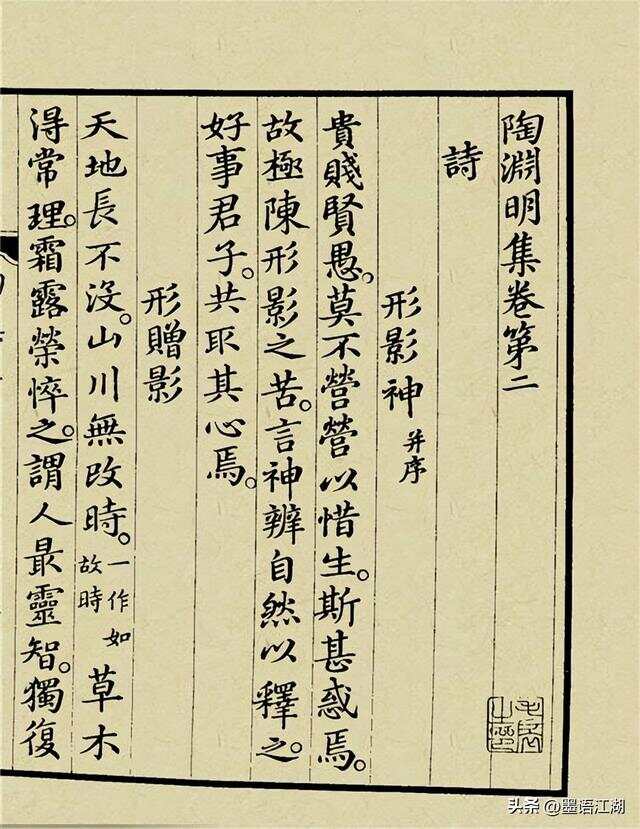 陶淵明集卷第二
詩
形影神 并序
貴賤賢愚。莫不營營以惜生。斯甚惑焉。
故極陳形影之苦。言神辨自然以釋之。
好事君子。共取其心焉。
形贈影
天地長不没。山川無改時。一作如故時草木
得常理。霜露榮悴之。謂人最靈智。獨復
头条 @墨语江湖